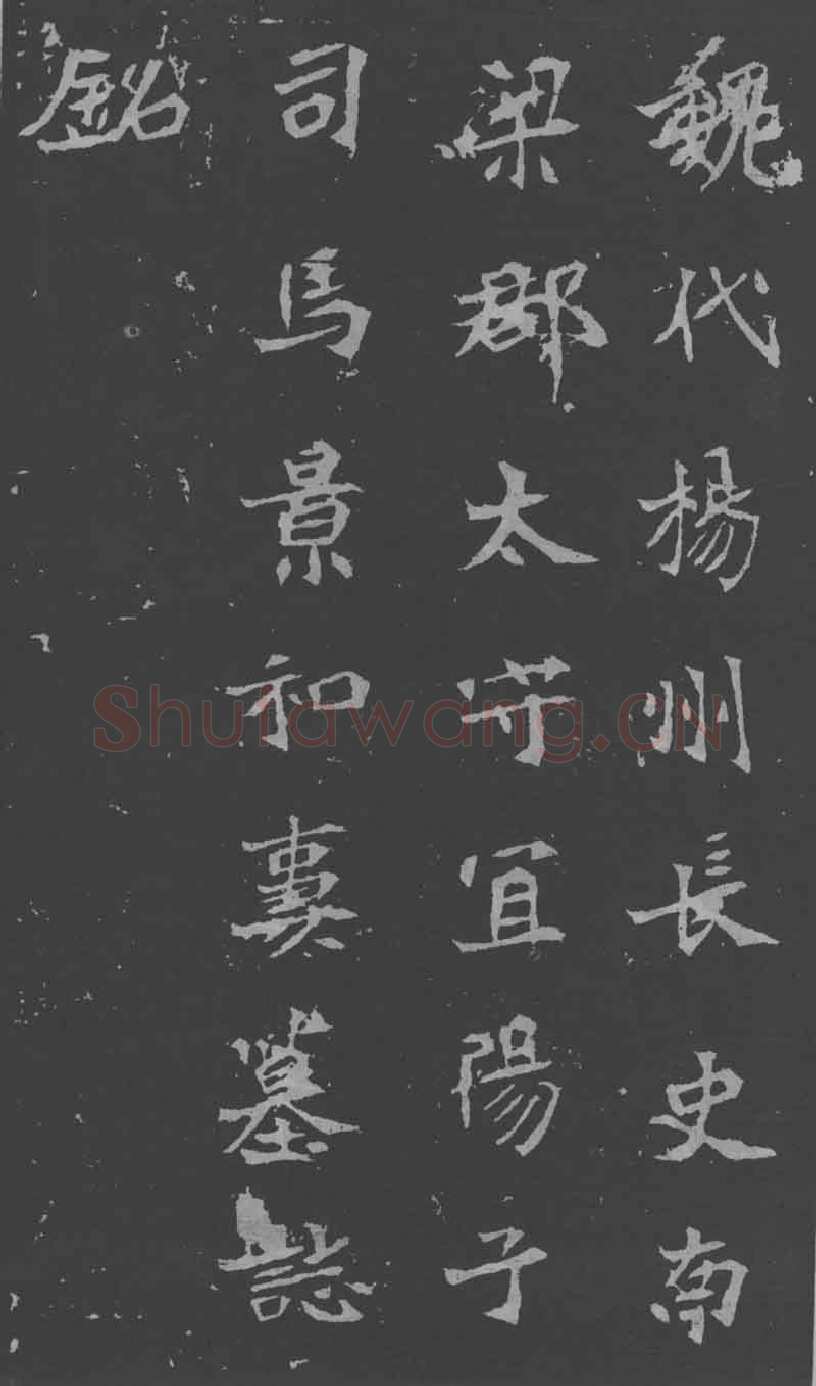 魏代楊州長史南
梁郡太守宜陽子
司馬景和妻墓誌
銘
Shufawang.CN